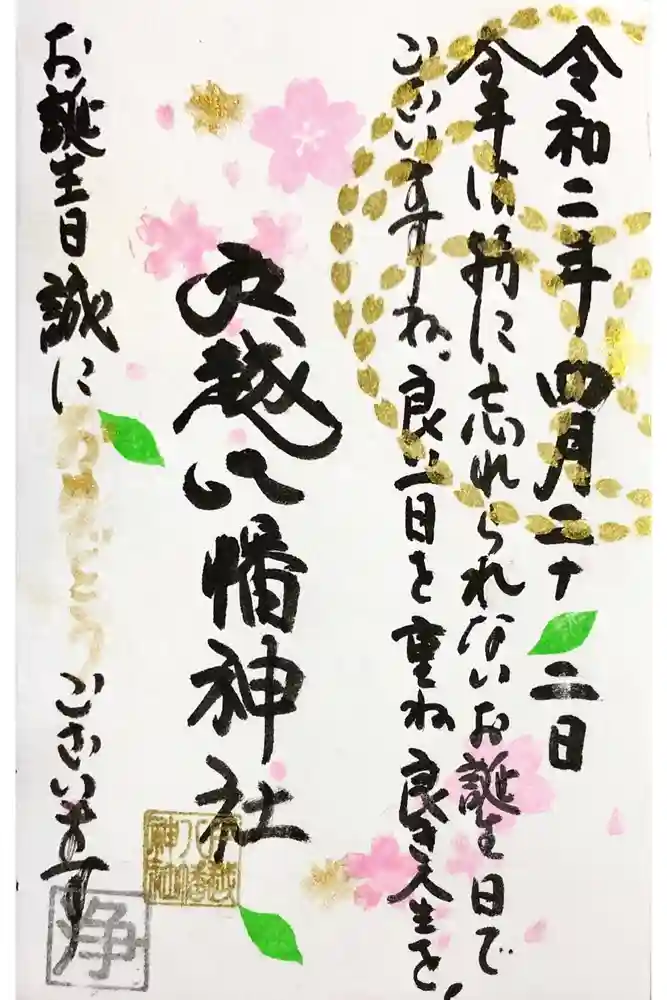 令和二年四月二十二日
今年は特に忘れられないお誕生日で
ございますね。良い日を重ね良き人生を。
越八幡神社
お誕生日誠におめでとうございます
八幡
神社
浄